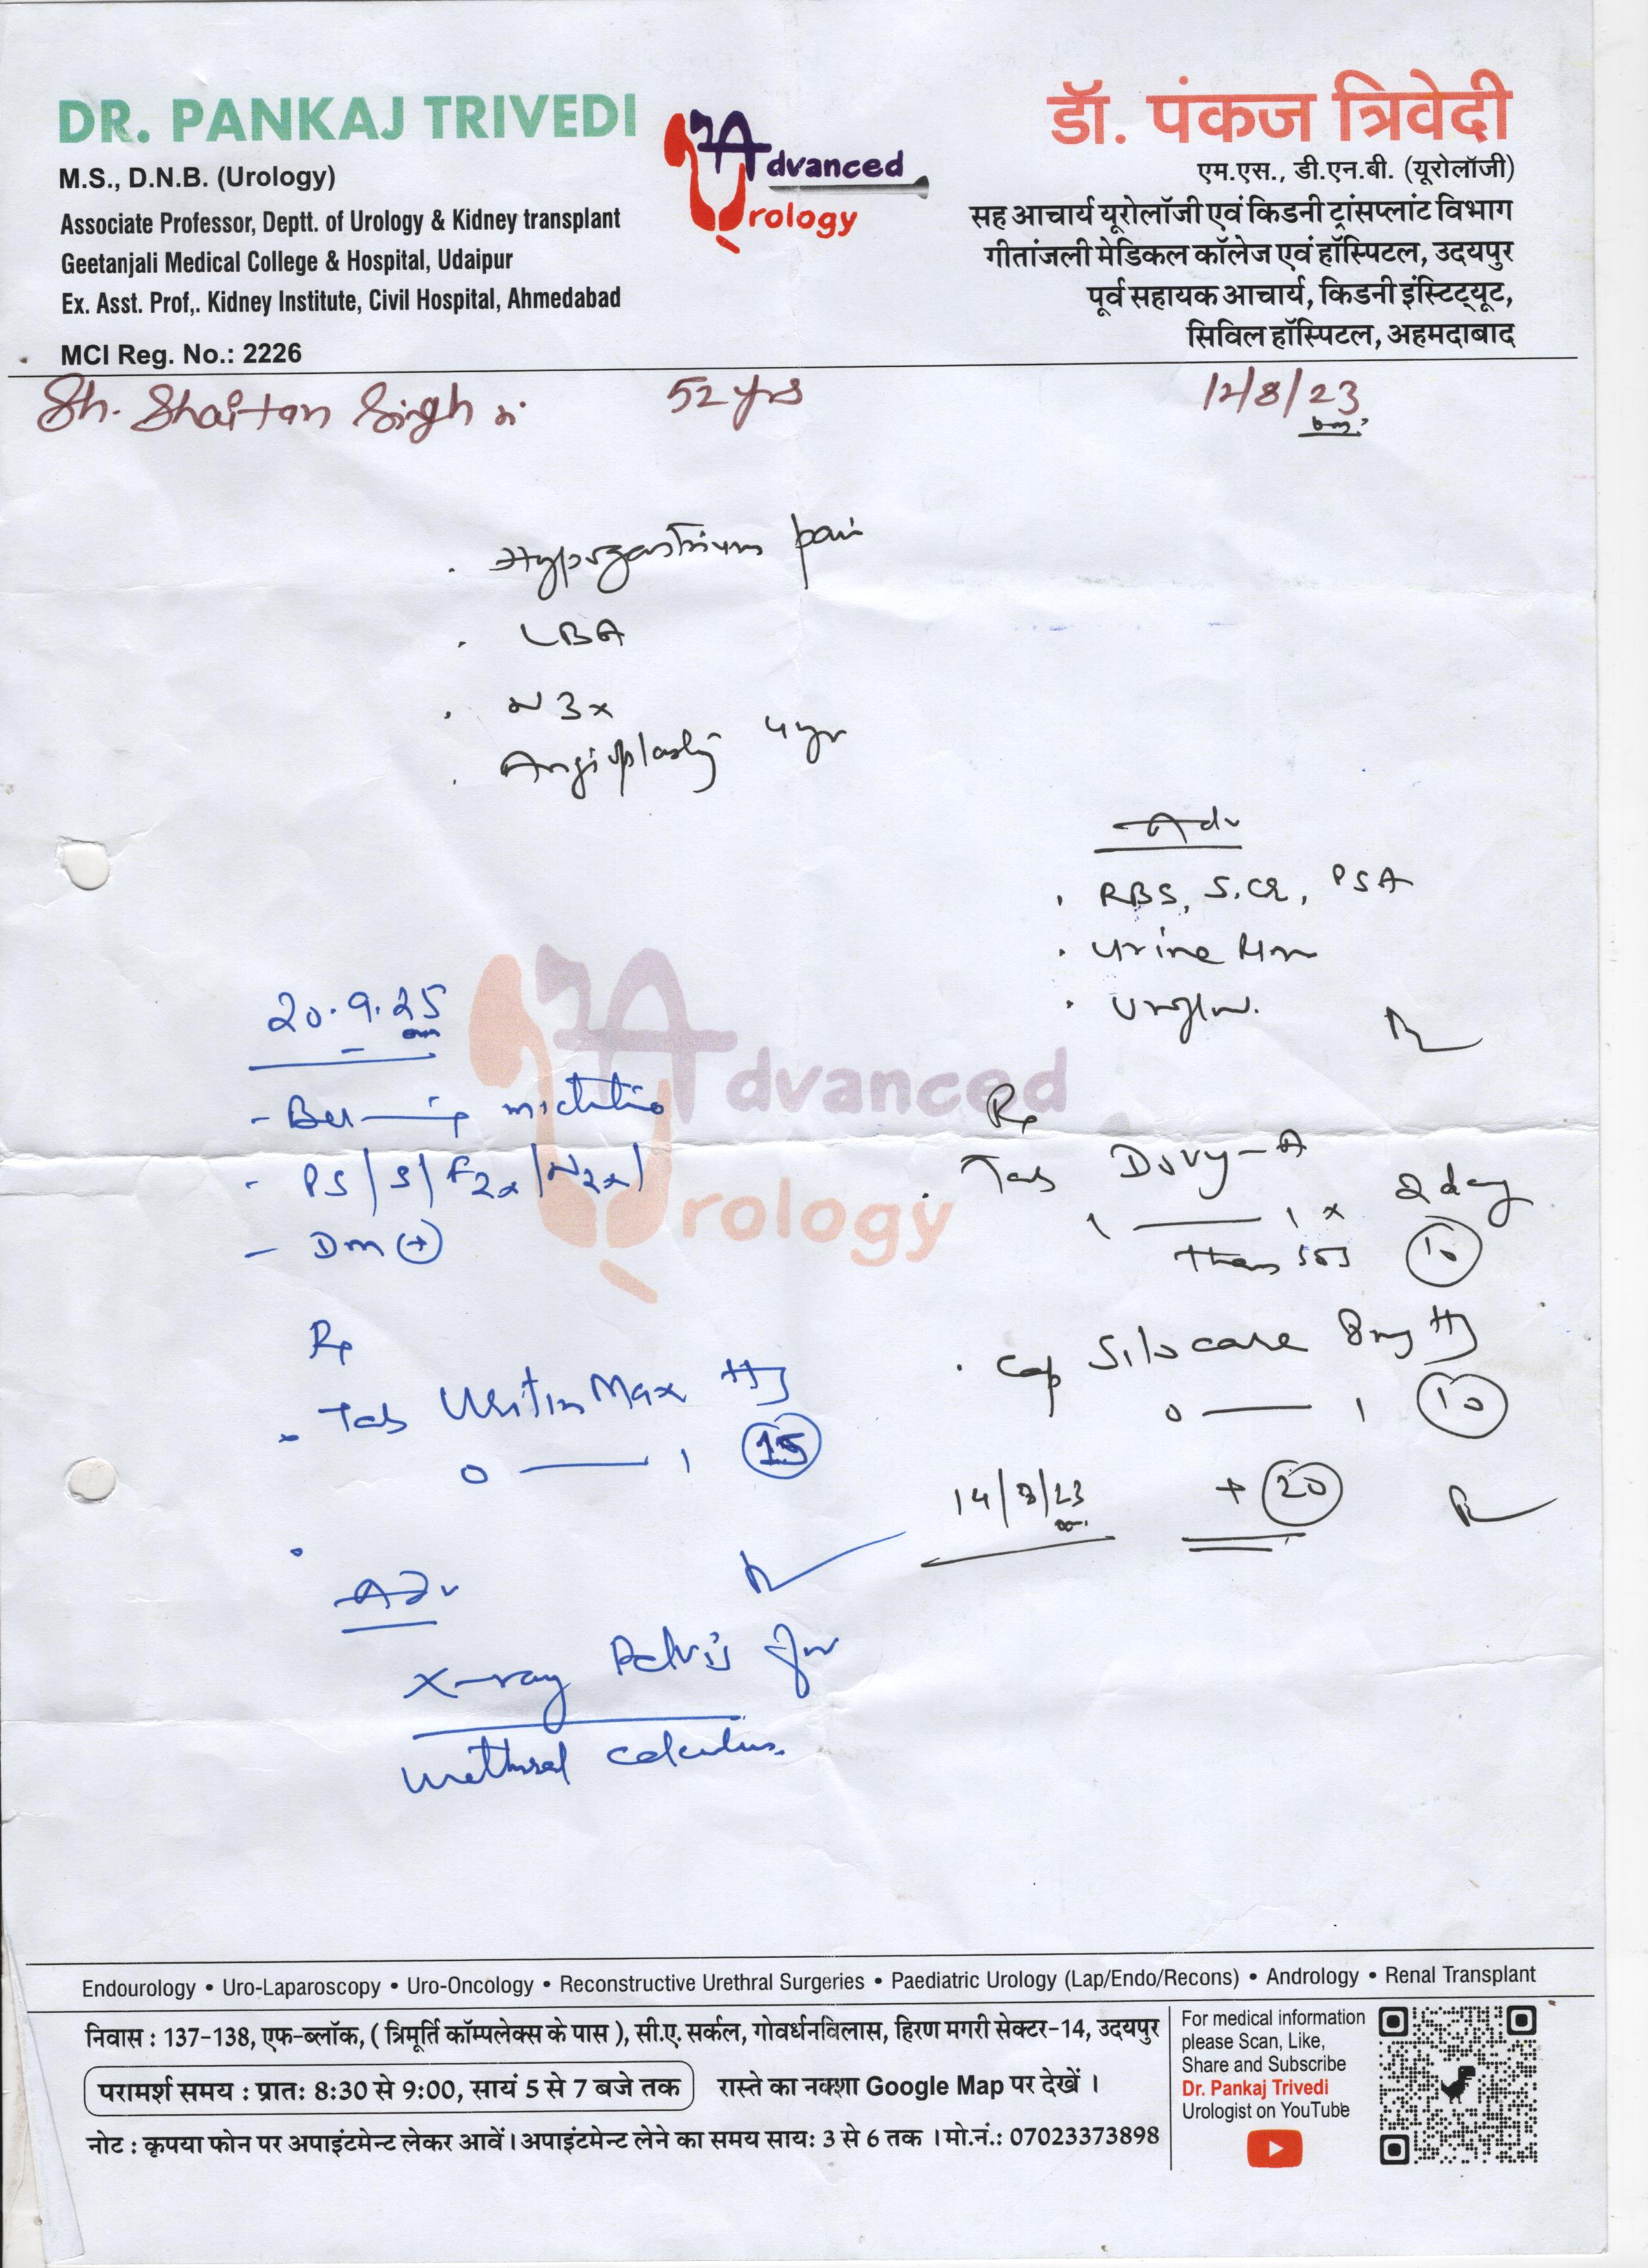 DR. PANKAJ TRIVEDI
M.S., D.N.B. (Urology)
Associate Professor, Deptt. of Urology & Kidney transplant
Geetanjali Medical College & Hospital, Udaipur
Ex. Asst. Prof,. Kidney Institute, Civil Hospital, Ahmedabad
MCI Reg. No.: 2226
Advanced
Urology
डॉ. पंकज त्रिवेदी
एम.एस., डी.एन.बी. (यूरोलॉजी)
सह आचार्य यूरोलॉजी एवं किडनी ट्रांसप्लांट विभाग
गीतांजली मेडिकल कॉलेज एवं हॉस्पिटल, उदयपुर
पूर्व सहायक आचार्य, किडनी इंस्टिट्यूट,
सिविल हॉस्पिटल, अहमदाबाद
Sh. Shaitan Singh 52 yrs 12/8/23
. Hypogastrium pain
. LBA
. N 3x
. Angioplasty 4 yr
Adv
. RBS, S.Cr, PSA
. Urine
Rp
. Tab Dury-A
1 — 1 x 2 day
then SOS 10
. Cap Silocare 8mg HS
0 — 1 10
14/8/23 + 20
20.9.25
- Burning mictitio
- PS/S/F2x/N2x/
- Dm (+)
Rp
. Tab Max HS
0 — 1 15
Adv
X-ray Pelvis for
urethral calculus.
Advanced
Urology
Endourology • Uro-Laparoscopy • Uro-Oncology • Reconstructive Urethral Surgeries • Paediatric Urology (Lap/Endo/Recons) • Andrology • Renal Transplant
निवास : 137-138, एफ-ब्लॉक, ( त्रिमूर्ति कॉम्पलेक्स के पास ), सी.ए. सर्कल, गोवर्धनविलास, हिरण मगरी सेक्टर-14, उदयपुर
परामर्श समय : प्रातः 8:30 से 9:00, सायं 5 से 7 बजे तक रास्ते का नक्शा Google Map पर देखें ।
नोट : कृपया फोन पर अपाइंटमेन्ट लेकर आवें। अपाइंटमेन्ट लेने का समय सायः 3 से 6 तक । मो.नं.: 07023373898
For medical information
please Scan, Like,
Share and Subscribe
Dr. Pankaj Trivedi
Urologist on YouTube